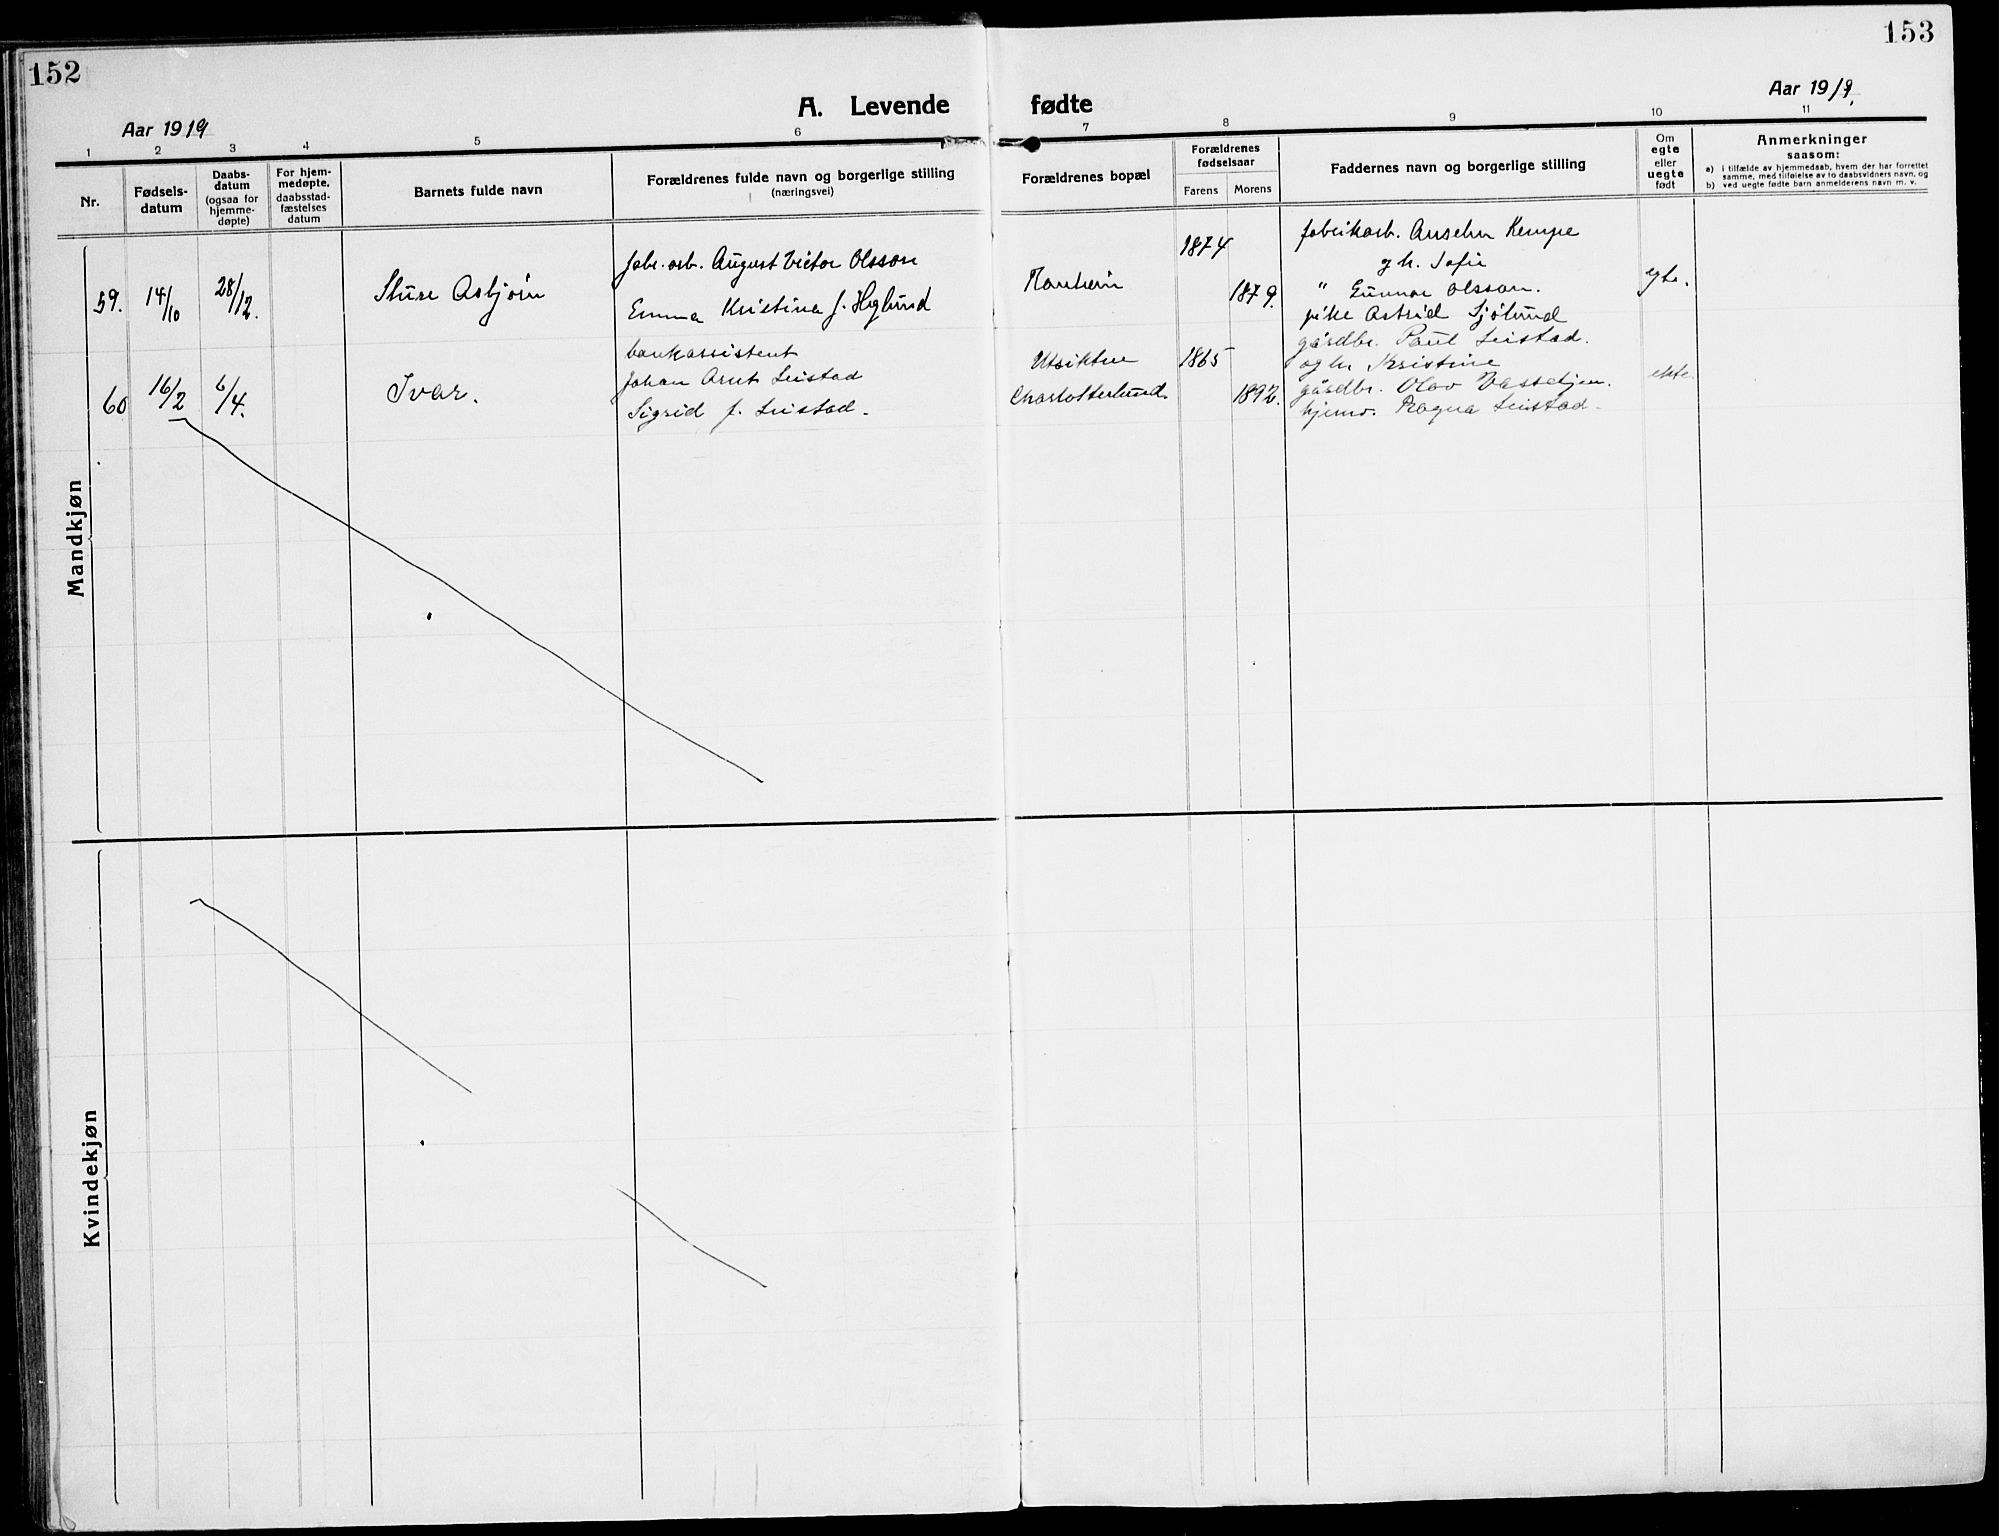 152
153
A. Levende fødte
Aar 1919
Aar 1919
1 2 3 4 5 6 7 8 9 10 11
Nr.
Fødsels-
datum
Daabs-
datum
(ogsaa for
hjemme-
døpte)
For hjem-
medøpte,
daabsstad-
fæstelses
datum
Barnets fulde navn
Forældrenes fulde navn og borgerlige stilling
(næringsvei)
Forældrenes bopæl
Forældrenes
fødselsaar
Farens Morens
Faddernes navn og borgerlige stilling
Om
egte
eller
uegte
født
Anmerkninger
saasom:
a) i tilfælde av hjemmedaab, hvem der har forrettet
samme, med tilføielse av to daabsvidners navn, og
b) ved uegte fødte barn anmelderens navn m. v.
Mandkjøn
59. 14/10 28/12. Sture Asbjørn
Fabr. arb. August Victor Olsson
Emma Kristina f. Høglund
Ranheim
1874
1879.
fabrikarb. Anselm Kempe
g. h. Sofie
" Gunnar Olsson.
pike Astrid Sjölund
egte.
60 16/2 6/4. Ivar.
bankassistent
Johan Arnt Leistad
Sigrid f. Leistad.
Utsikten
Charlottenlund.
1865
1892.
gårdbr. Paul Leistad.
og hu Kristine
gårdbr. Olav Vassehjen.
hjemv. Ragna Leistad.
ekte.
Kvindekjøn